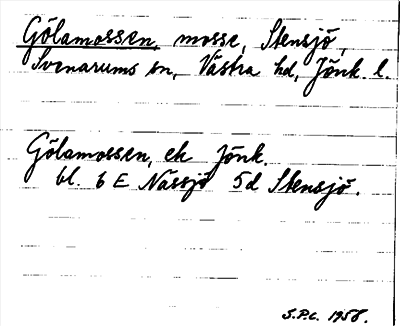 Gölamossen, mosse, Stensjö,
Svenarums sn, Västra hd, Jönk. l.
Gölamossen, ek Jönk.
bl. 6 E Nässjö 5d Stensjö.
S.P.C. 1958.